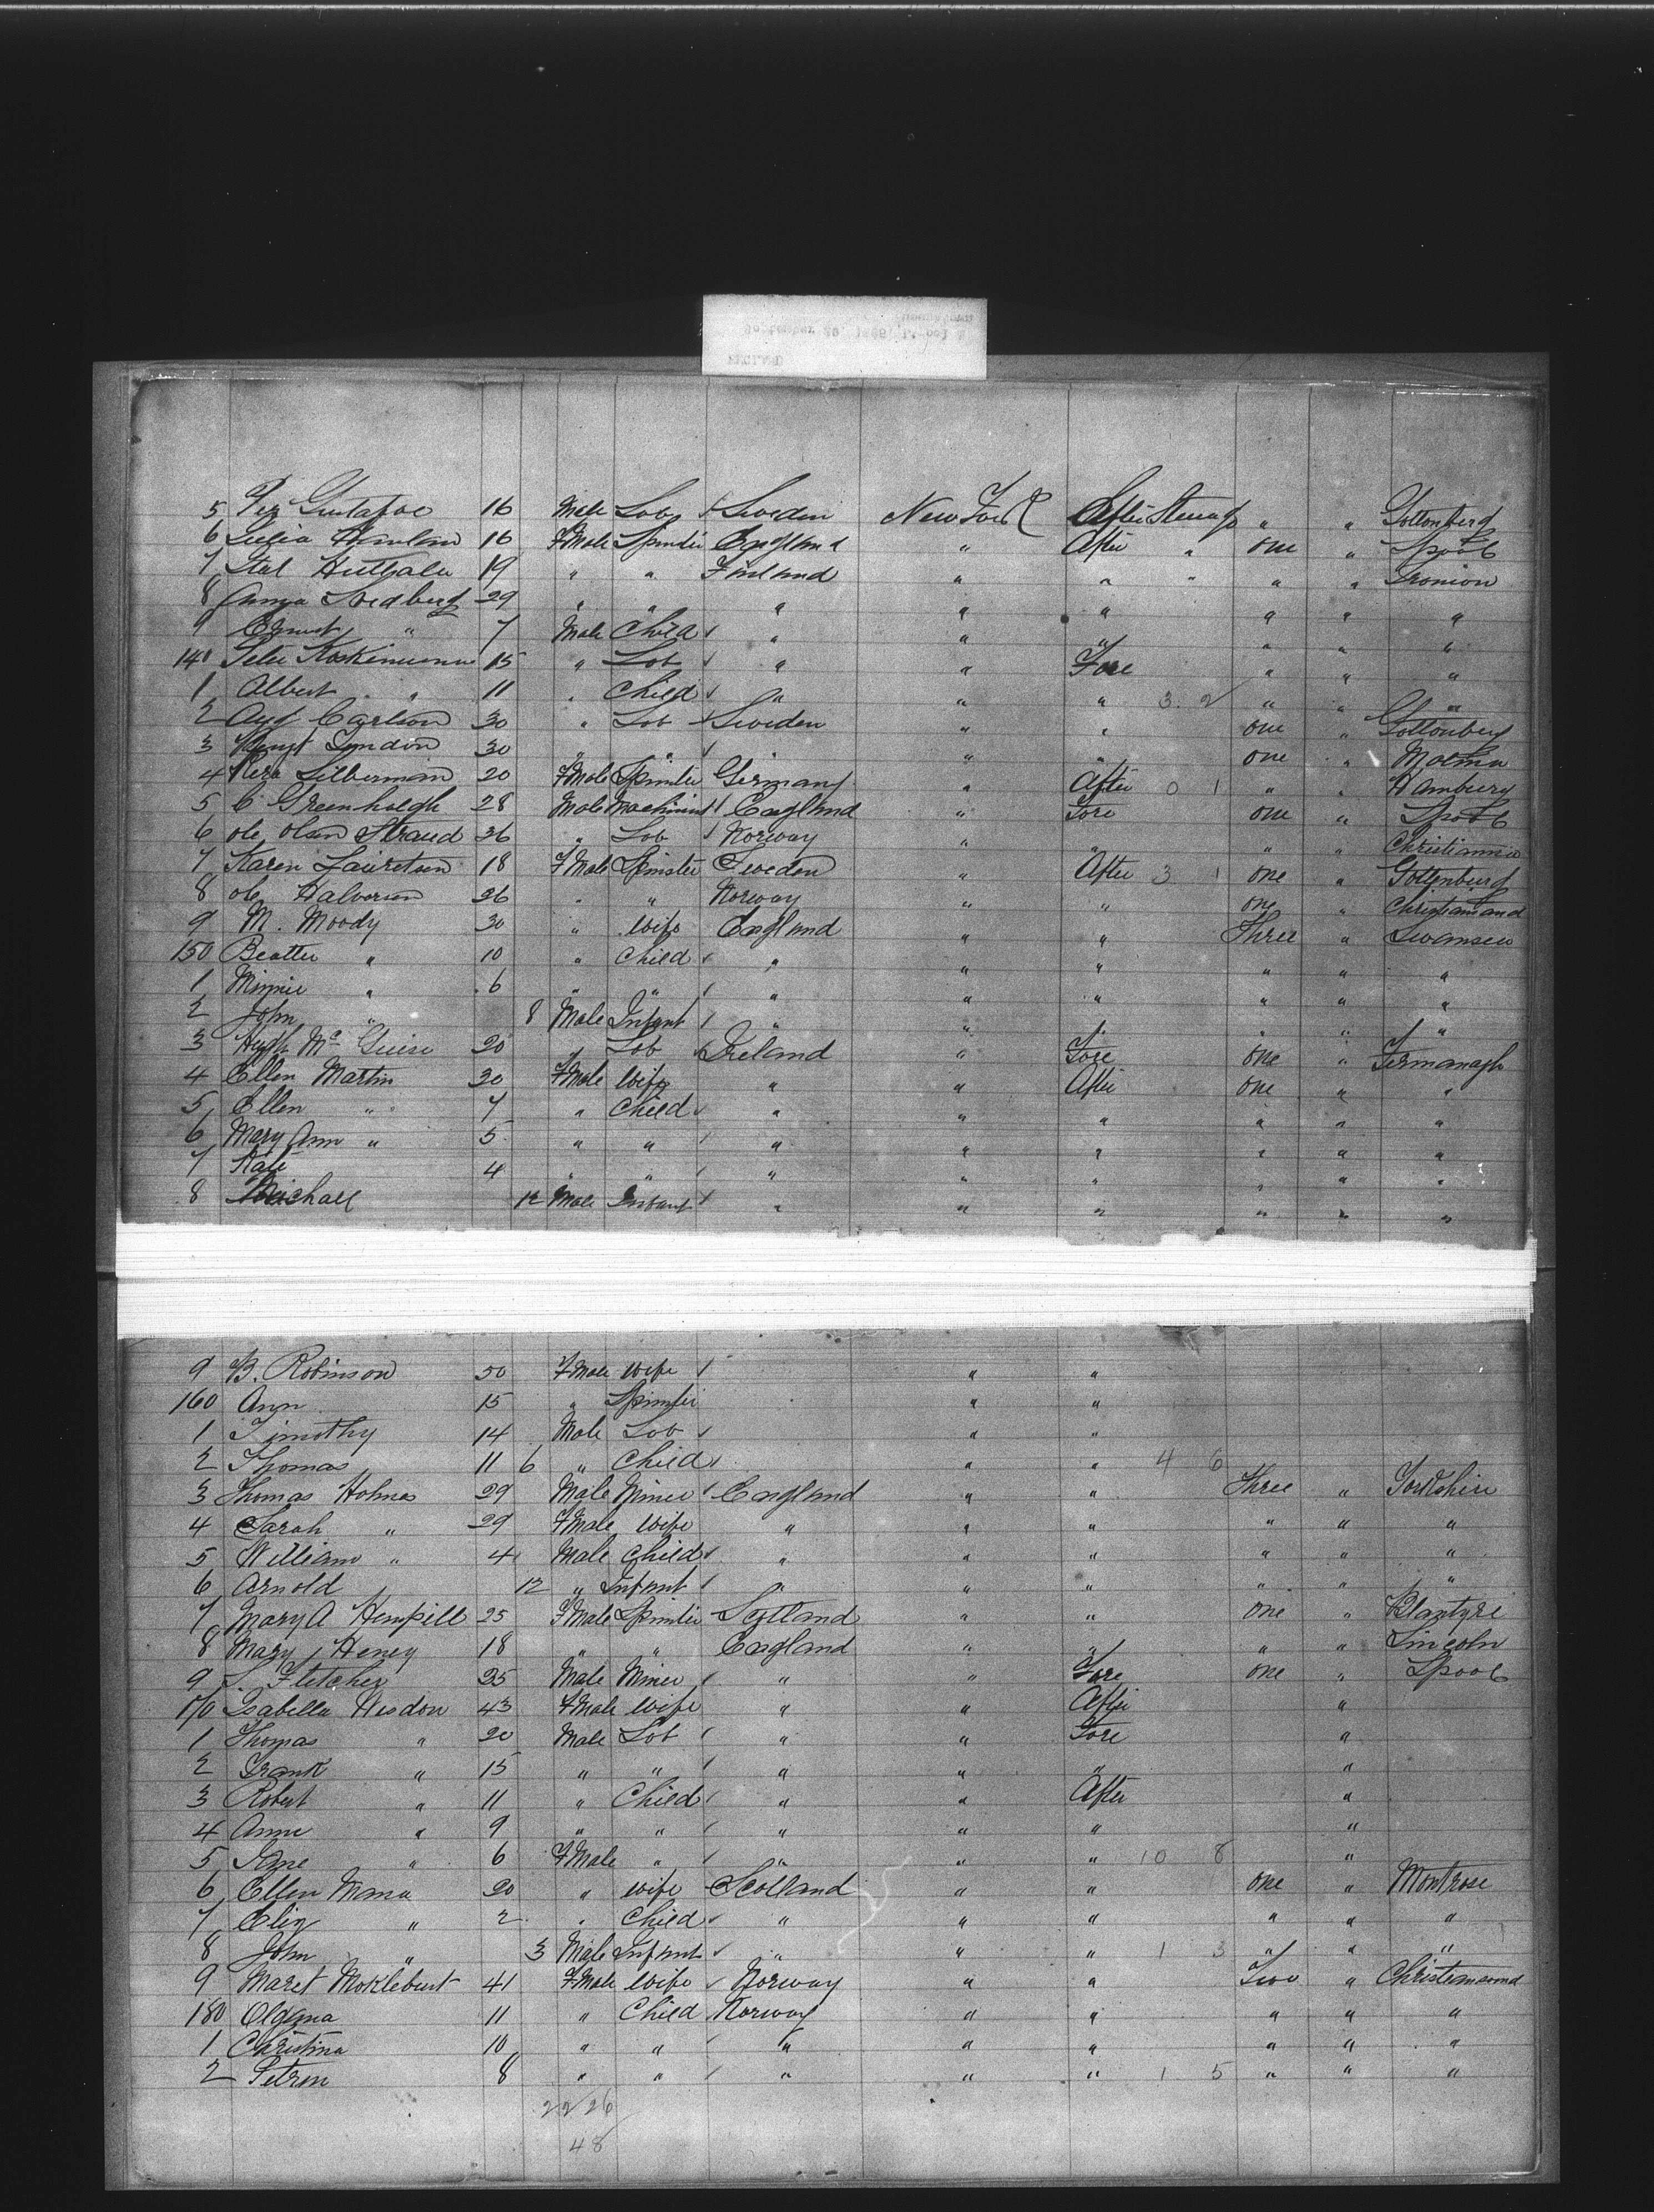 5 Per Gustafoe 16 Male Lab Sweden New York After Steerage " " Gottonberg
6 16 FMale Spinster England " After " one " Lpool
7 19 " " Finland " " " " "
8 Anna Sedberg 29 " " " " " " " "
9 Ernest " 7 Male Child " " " " " "
140 Peter Koskinuma 15 " Lab " " Fore " " "
1 Albert " 11 " Child " " " 3 2 " " "
2 Aug Carlson 30 " Lab Sweden " " one " Gottonberg
3 30 " " " " one " Malma
4 Silberman 20 FMale Spinster Germany " After 0 1 " " Hamburg
5 C Greenhalgh 28 Male Machinist England " Fore one " Lpool
6 ole olsen Straud 36 " Lab Norway " " " " Christiannia
7 Karen Lauretsen 18 FMale Spinster Sweden " After 3 1 one " Gottenburg
8 ole Halversen 26 " " Norway " " one " Christiansand
9 M. Moody 30 " Wife England " " Three " Swansea
150 Beatter " 10 " Child " " " " " "
1 Minnie " 6 " " " " " " " "
2 John " 8 Male Infant " " " " " "
3 Hugh Mc Guire 20 " Lab Ireland " Fore one " Fermanagh
4 Ellen Martin 30 FMale Wife " " After one " "
5 Ellen " 7 " Child " " " " " "
6 Mary Ann " 5 " " " " " " " "
7 Kate 4 " " " " " " " "
8 Michael 12 Male Infant " " " " " "
9 B. Robinson 50 FMale Wife " "
160 Ann 15 " Spinster " "
1 Timothy 14 Male Lab " "
2 Thomas 11 6 " Child " " 4 6
3 Thomas Holmes 29 Male Miner England " " Three " Yorkshire
4 Sarah " 29 FMale Wife " " " " " "
5 William " 4 Male Child " " " " " "
6 Arnold 12 " Infant " " " " " "
7 Mary A Hempill 25 FMale Spinster Scotland " " one " Blantyre
8 Mary Heney 18 " " England " " " " Lincoln
9 S. Fletcher 25 Male Miner " " Fore one " Lpool
170 Isabella Hesdon 43 FMale Wife " " After "
1 Thomas " 20 Male Lab " " Fore "
2 Frank " 15 " " " " " "
3 Robert " 11 " Child " " After "
4 Anne " 9 " " " " " "
5 Jane " 6 FMale " " " " 10 8 "
6 Ellen Mana 20 " Wife Scotland " " one " Montrose
7 " 2 " Child " " " " " "
8 John " 3 Male Infant " " " 1 3 " " "
9 Maret Moklebust 41 FMale Wife Norway " " Two " Christiansund
180 Olgena 11 " Child Norway " " " " "
1 Christina 10 " " " " " " " "
2 Petren 8 " " " " " 1 5 " " "
22 26
48